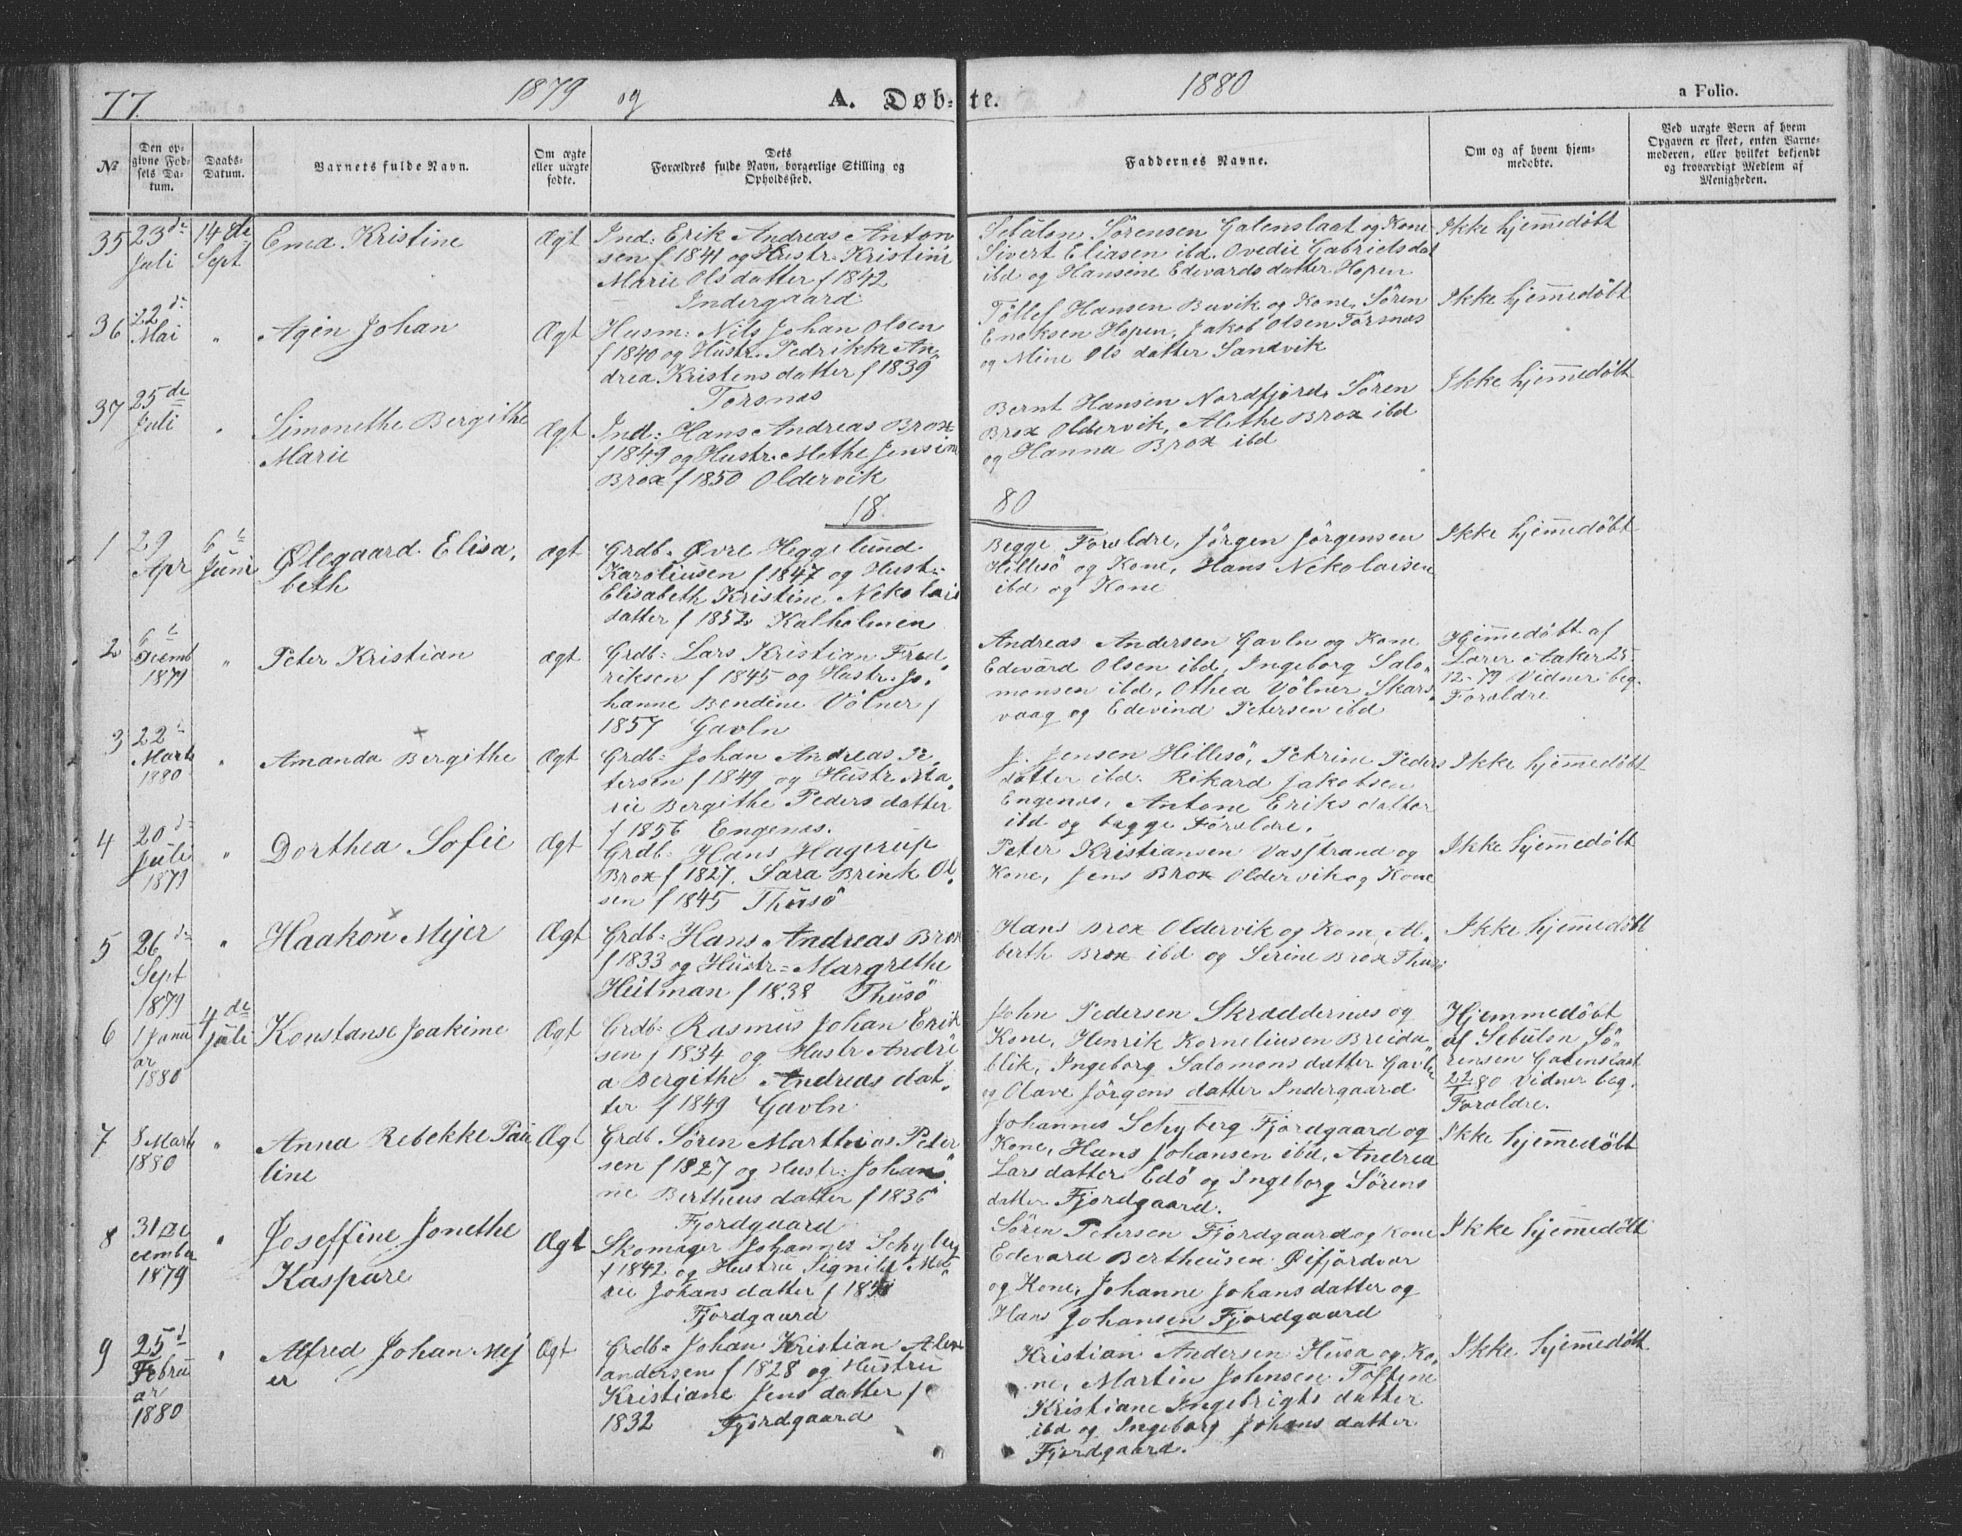 77.
1879 og
A. Døb-te.
1880
a Folio.
№
Den opgivne Fødsels Datum.
Daabs-Datum.
Barnets fulde Navn.
Om ægte eller uægte fødte.
Dets Forældres fulde Navn, borgerlige Stilling og Opholdssted.
Faddernes Navne.
Om og af hvem hjemmedøbte.
Ved uægte Børn af hvem Opgaven er skeet, enten Barnemoderen, eller hvilket bekjendt og troværdigt Medlem af Menigheden.
35
23de Juli
14de Sept
Ema Kristine
Ægt
Ind: Erik Andreas Anton
sen f 1841 og Hustr. Kristine
Marie Olsdatter f 1842
Indergaard
Sebulon Sörensen Galenslaat og Kone
Sivert Eliasen ibd. Ovedie Gabrielsdat
ibd og Hansene Edevardsdatter Hopen
Ikke hjemmedøbt
36
22de Mai
"
Agen Johan
Ægt
Husm: Nils Johan Olsen
f 1840 og Hustr. Pedrikke An
drea Kristensdatter f 1839
Torsnæs
Töllef Hansen Buvik og Kone, Sören
Enoksen Hopen, Jakob Olsen Torsnæs
og Mine Olsdatter Sandvik
Ikke hjemmedøbt
37
25de Juli
"
Simonethe Bergithe
Marie
Ægt
Ind: Hans Andreas Brox
f 1849 og Hustr. Methe Jensine
Brox f 1850 Oldervik
Bernt Hansen Nordfjord, Sören
Brox Oldervik, Alethe Brox ibd
og Hanna Brox ibd
Ikke hjemmedøbt
18 80
1
29 Apr
6te Juni
Ølegaard Elisa,
beth
Ægt
Grdb. Øvre Heggelund
Karoliusen f 1847 og Hust:
Elisabeth Kristine Nekolais
datter f 1852 Kalholmen
Begge Foreldre, Jörgen Jörgensen
Hillesö og Kone, Hans Nekolaisen
ibd og Kone
Ikke hjemmedöbt
2
6te
1879
"
Peter Kristian
Ægt
Grdb: Lars Kristian Fred
riksen f 1845 og Hustr. Jo,
hanne Bendine Völner f
1857 Gavln
Andreas Andersen Gavln og Kone
Edevard Olsen ibd, Ingeborg Salo,
monsen ibd, Othea Völner Skars,
vaag og Edevind Petersen ibd
Hjemmedöbt af
Lærer Aaker 25
12-79 Vidner beg.
Foreldre
3
22de Marts 1880
"
Amanda Bergithe
Ægt
Grdb: Johan Andreas Pe,
tersen f 1849 og Hustr. Ma,
rie Bergithe Pedersdatter
f 1856 Engenæs.
J. Jensen Hillesö, Petrine Peders
datter ibd. Rikard Jakobsen
Engenæs, Antone Eriksdatter
ibd og begge Foreldre.
Ikke hjemmedöbt
4
20de Juli 1879
"
Dorthea Sofie
Ægt
Grdb: Hans Hagerup
Brox f 1827. Sara Brink Ol,
sen f 1845 Thusö
Peter Kristiansen Vasstrand og
Kone, Jens Brox Oldervik og Kone
Ikke hjemmedöbt
5
26de Sept 1879
"
Haakon Mejer
Ægt
Grdb: Hans Andreas Brox
f 1833 og Hustr: Margrethe
Heitman f 1838 Thusö
Hans Brox Oldervik og Kone, Al,
berth Brox ibd og Serine Brox Thusö
Ikke hjemmedöbt
6
1 Janu
ar
1880
4de Juli
Konstanse Joakime
Ægt
Grdb: Rasmus Johan Erik
sen f 1834 og Hustr Andre
a Bergithe Andreasdat,
ter f 1849 Gavln
John Pedersen Skræddernæs og
Kone, Henrik Korneliusen Breida,
blik, Ingeborg Salomonsdatter Gavln
og Olave Jörgensdatter Indergaard
Hjemmedöbt
af Sebulon Sö,
rensen Galenslaat
22/1 80 Vidner beg.
Foreldre.
7
8 Marts 1880
"
Anna Rebekke Pau
line
Ægt
Grdb. Sören Marthias Peter
sen f 1827 og Hustr: Johan,
ne Bertheusdatter f 1836
Fjordgaard
Johannes Schyberg Fjordgaard og
Kone, Hans Johansen ibd, Andrea
Larsdatter Edö og Ingeborg Sörens
datter Fjordgaard.
Ikke hjemmedöbt
8
31 De
cember
1879
"
Joseffine Jonethe
Kaspare
Ægt
Skomager Johannes Schyberg
f 1842 og Hustru Signild Ma,
rie Johansdatter f
Fjordgaard
Sören Petersen Fjordgaard og Kone
Edevard Bertheusen Øifjordvær
og Kone, Johanne Johansdatter og
Hans Johansen Fjordgaard
Ikke hjemmedöbt
9
25de
Febru
ar
1880
"
Alfred Johan Mej
er
Ægt
Grdb: Johan Kristian Alex
andersen f 1828 og Hustru
Kristiane Jensdatter f
1832 Fjordgaard
Kristian Andersen Husa og Ko,
ne, Martin Johnsen Toftene
Kristiane Ingebrigtsdatter
ibd og Ingeborg Johansdatter
Fjordgaard.
Ikke hjemmedöbt